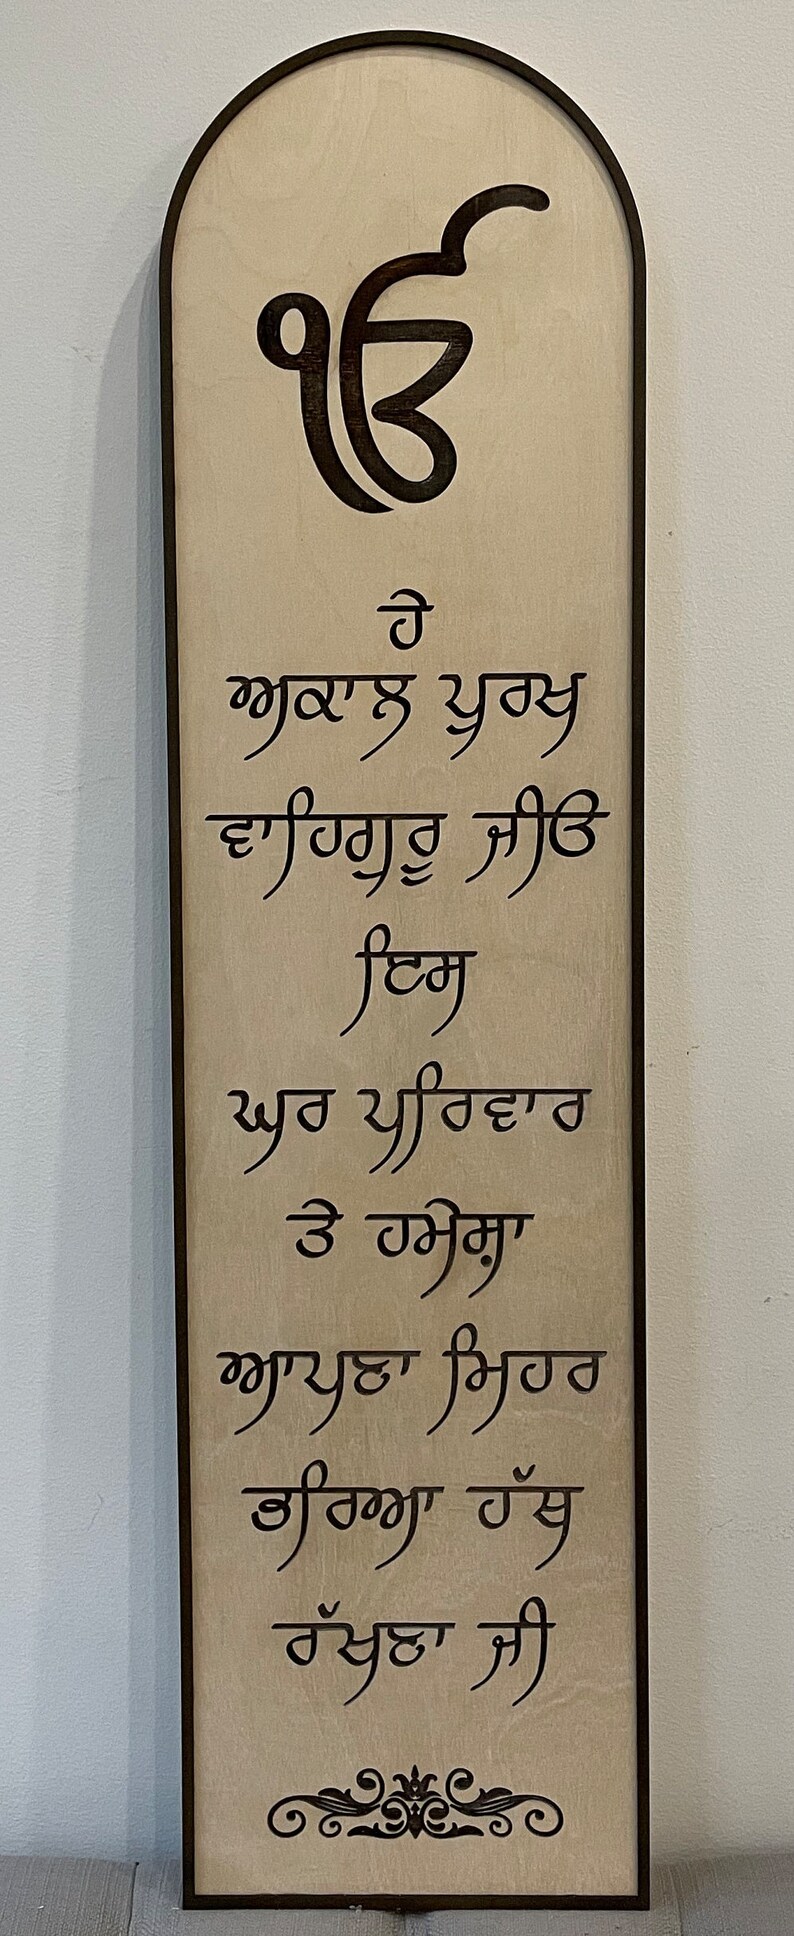 ੴ
ਹੇ
ਅਕਾਲ ਪੁਰਖ
ਵਾਹਿਗੁਰੂ ਜੀਓ
ਇਸ
ਘਰ ਪਰਿਵਾਰ
ਤੇ ਹਮੇਸ਼ਾ
ਆਪਣਾ ਮਿਹਰ
ਭਰਿਆ ਹੱਥ
ਰੱਖਣਾ ਜੀ